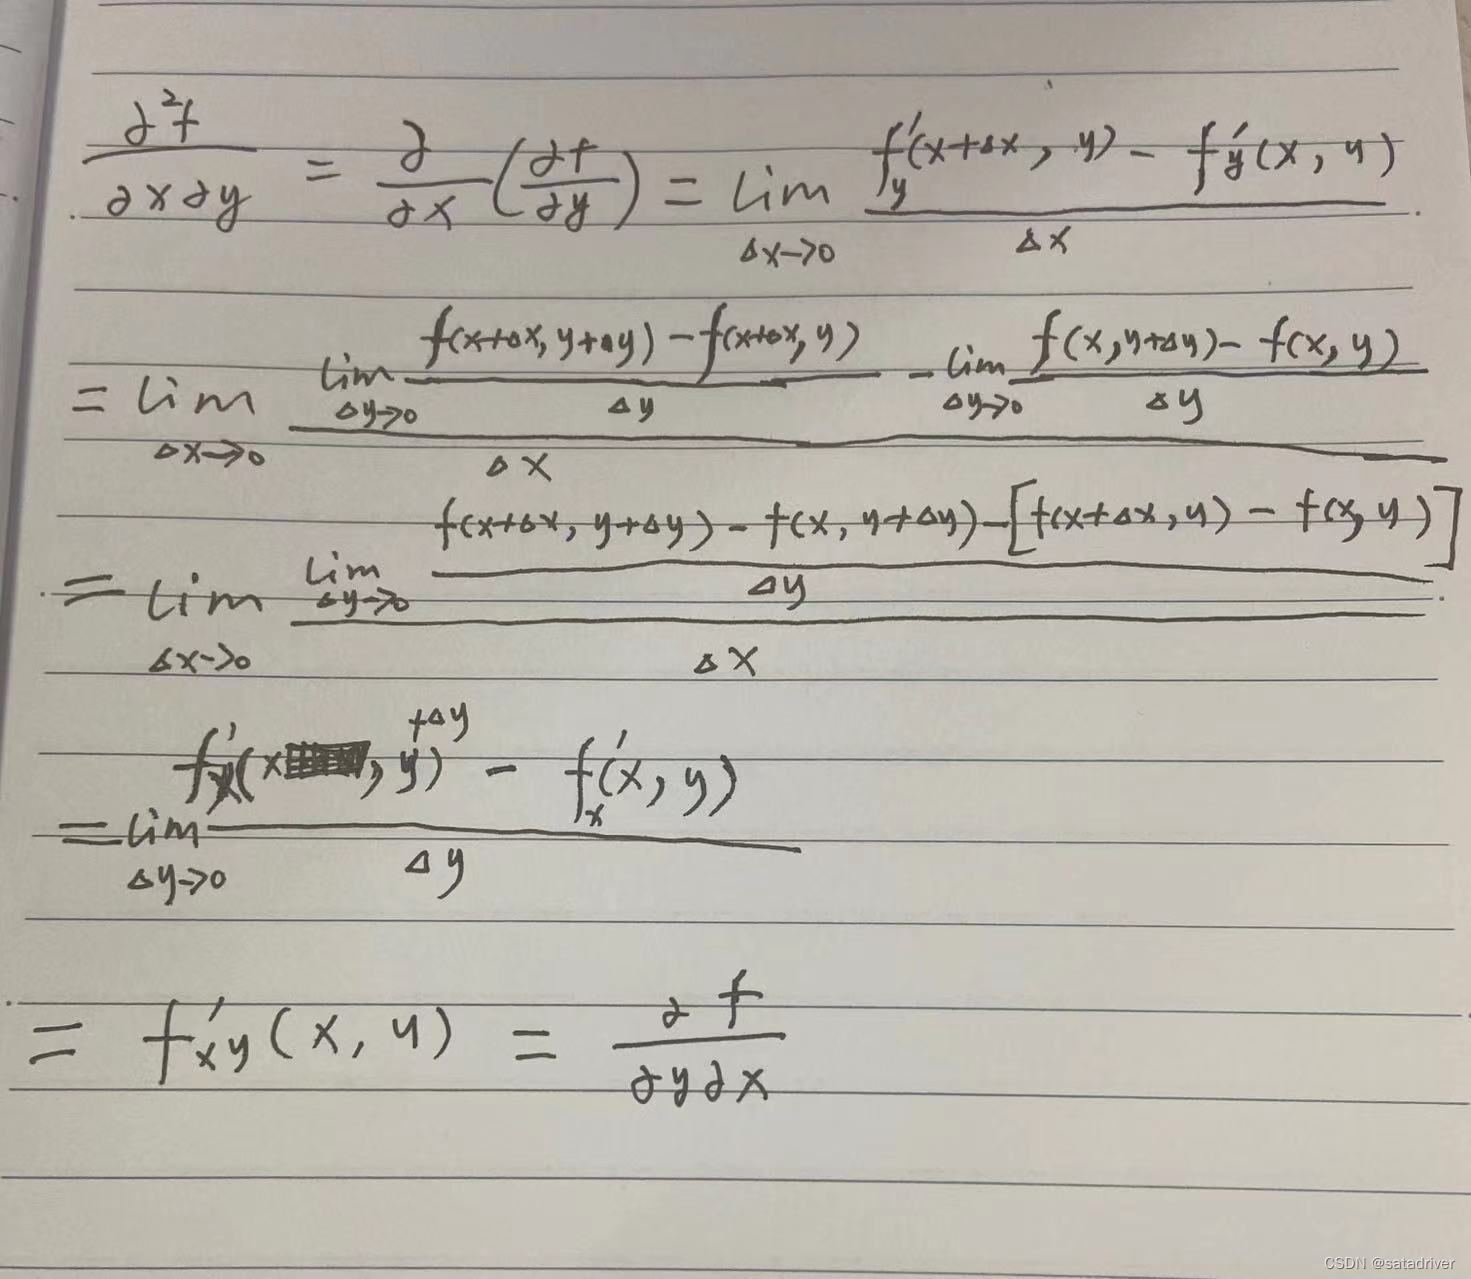 ∂²f/∂x∂y = ∂/∂x (∂f/∂y) = lim_{Δx->0} [f'_y(x+Δx, y) - f'_y(x, y)] / Δx
= lim_{Δx->0} [lim_{Δy->0} (f(x+Δx, y+Δy) - f(x+Δx, y)) / Δy - lim_{Δy->0} (f(x, y+Δy) - f(x, y)) / Δy] / Δx
= lim_{Δx->0} [lim_{Δy->0} (f(x+Δx, y+Δy) - f(x, y+Δy) - [f(x+Δx, y) - f(x, y)]) / Δy] / Δx
= lim_{Δy->0} [f'_x(x, y+Δy) - f'_x(x, y)] / Δy
= f'_xy(x, y) = ∂f/∂y∂x
CSDN @satadriver